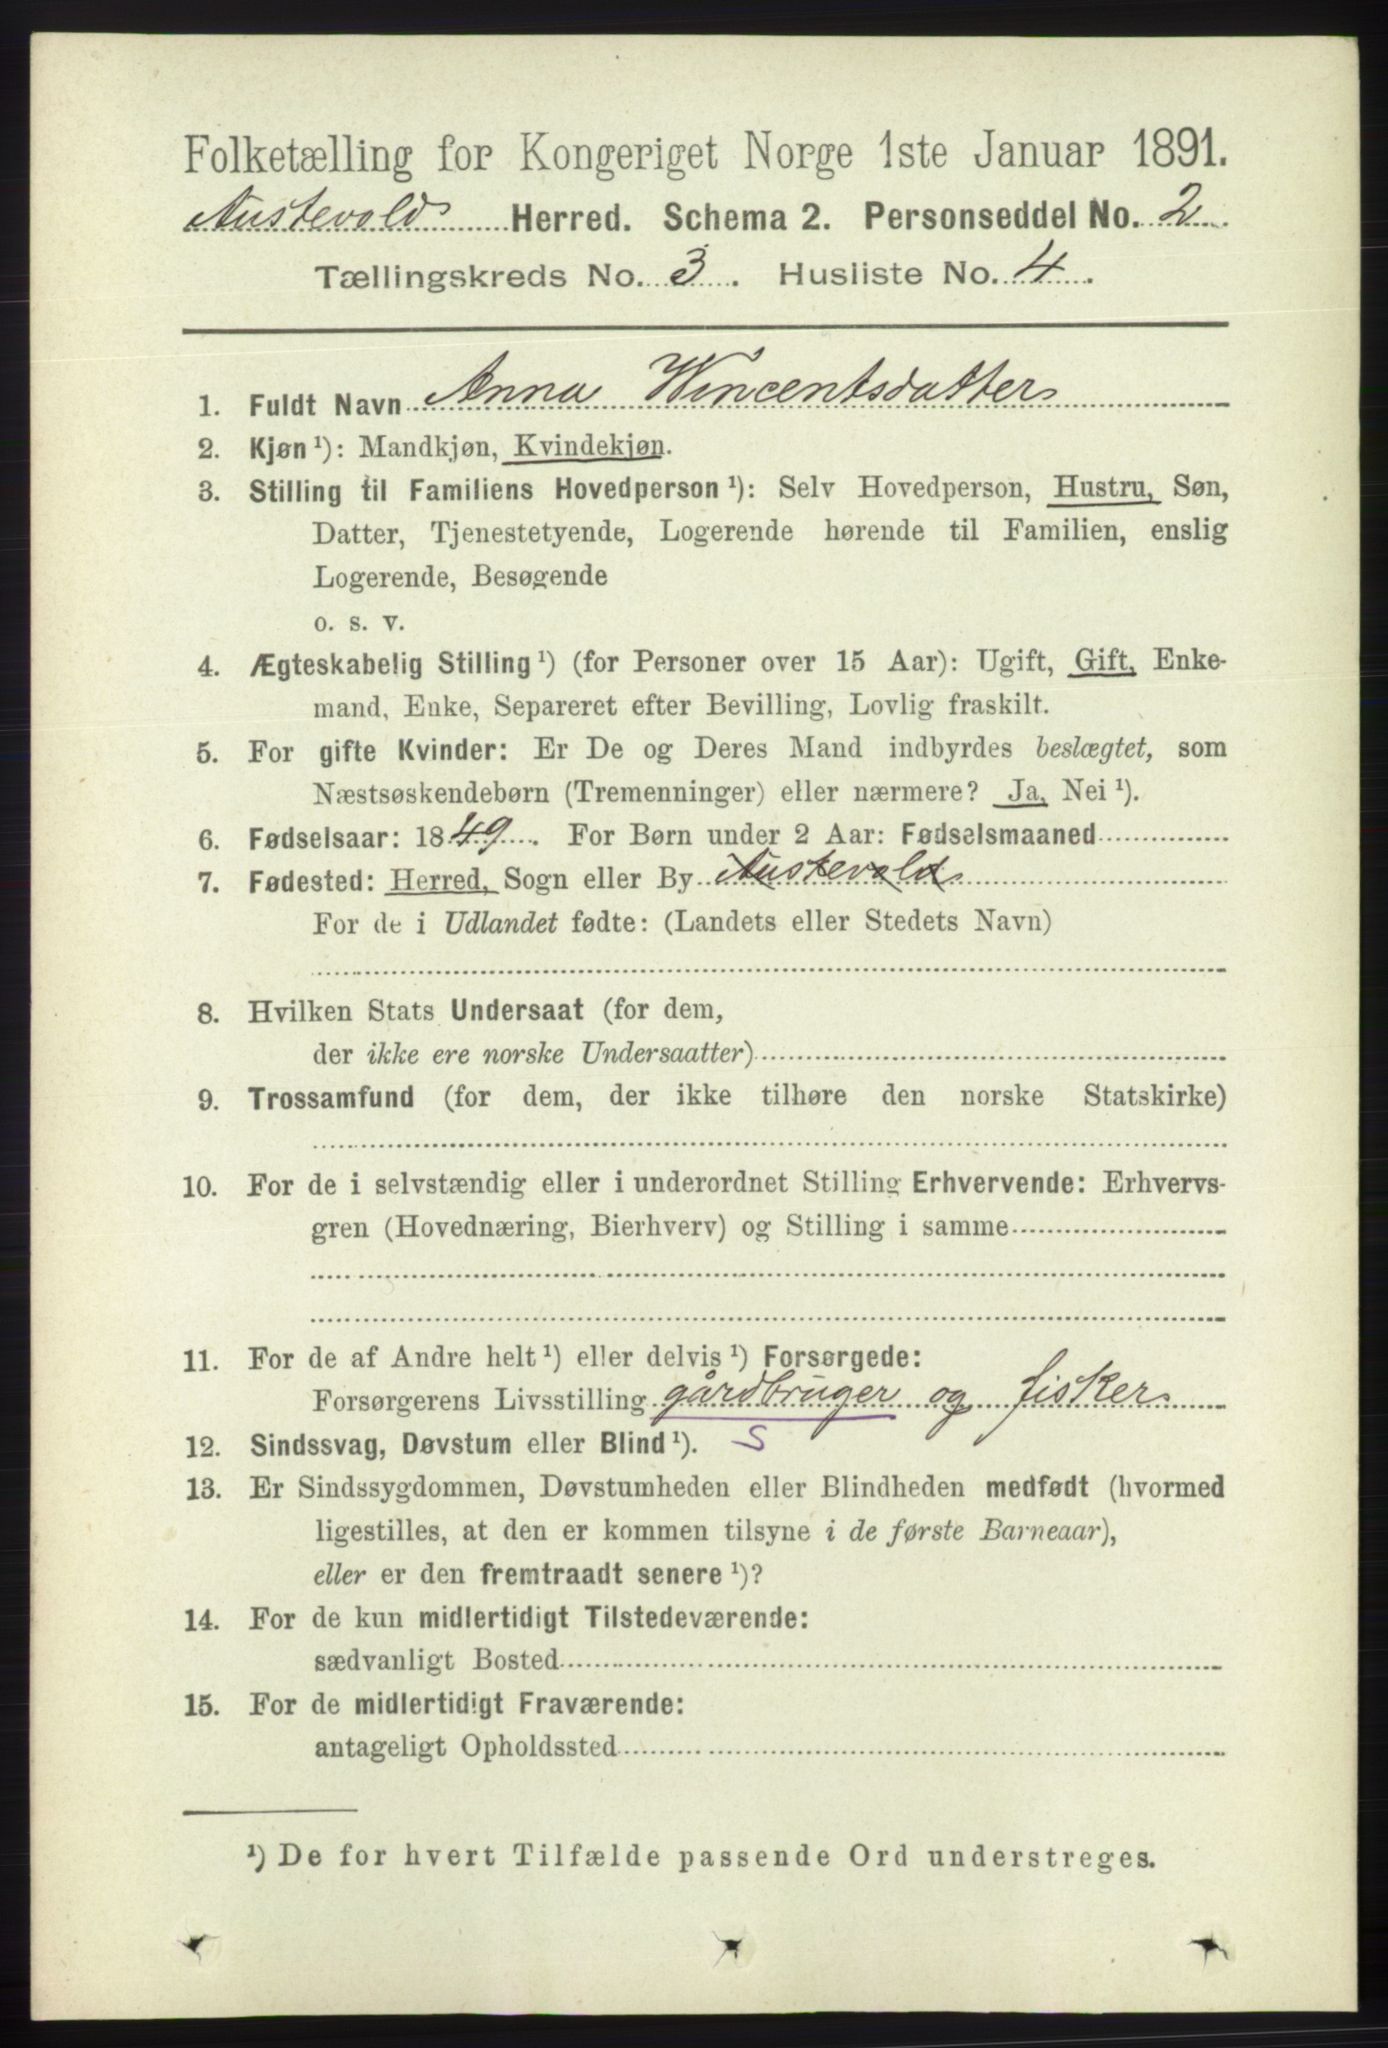 Folketælling for Kongeriget Norge 1ste Januar 1891.
Austevold Herred. Schema 2. Personseddel No. 2
Tællingskreds No. 3. Husliste No. 4.
1. Fuldt Navn Anna Wincentsdatter
2. Kjøn ¹): Mandkjøn, Kvindekjøn.
3. Stilling til Familiens Hovedperson ¹): Selv Hovedperson, Hustru, Søn,
Datter, Tjenestetyende, Logerende hørende til Familien, enslig
Logerende, Besøgende
o. s. v.
4. Ægteskabelig Stilling ¹) (for Personer over 15 Aar): Ugift, Gift, Enke-
mand, Enke, Separeret efter Bevilling, Lovlig fraskilt.
5. For gifte Kvinder: Er De og Deres Mand indbyrdes beslægtet, som
Næstsøskendebørn (Tremenninger) eller nærmere? Ja, Nei ¹).
6. Fødselsaar: 1849. For Børn under 2 Aar: Fødselsmaaned
7. Fødested: Herred, Sogn eller By Austevold
For de i Udlandet fødte: (Landets eller Stedets Navn)
8. Hvilken Stats Undersaat (for dem,
der ikke ere norske Undersaatter)
9. Trossamfund (for dem, der ikke tilhøre den norske Statskirke)
10. For de i selvstændig eller i underordnet Stilling Erhvervende: Erhvervs-
gren (Hovednæring, Bierhverv) og Stilling i samme
11. For de af Andre helt ¹) eller delvis ¹) Forsørgede:
Forsørgerens Livsstilling gårdbruger og fisker
12. Sindssvag, Døvstum eller Blind ¹). S
13. Er Sindssygdommen, Døvstumheden eller Blindheden medfødt (hvormed
ligestilles, at den er kommen tilsyne i de første Barneaar),
eller er den fremtraadt senere ¹)?
14. For de kun midlertidigt Tilstedeværende:
sædvanligt Bosted
15. For de midlertidigt Fraværende:
antageligt Opholdssted
¹) De for hvert Tilfælde passende Ord understreges.